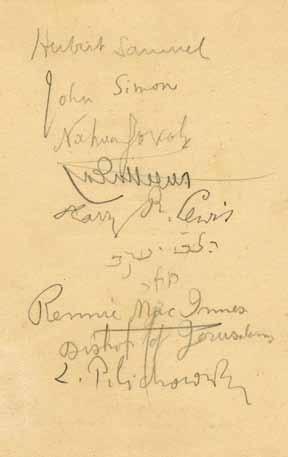 Herbert Samuel
John Simon
Nahum Sokolow
Harry S. Lewis
Rennie Mac Innes
Bishop of Jerusalem
L. Pilichowski